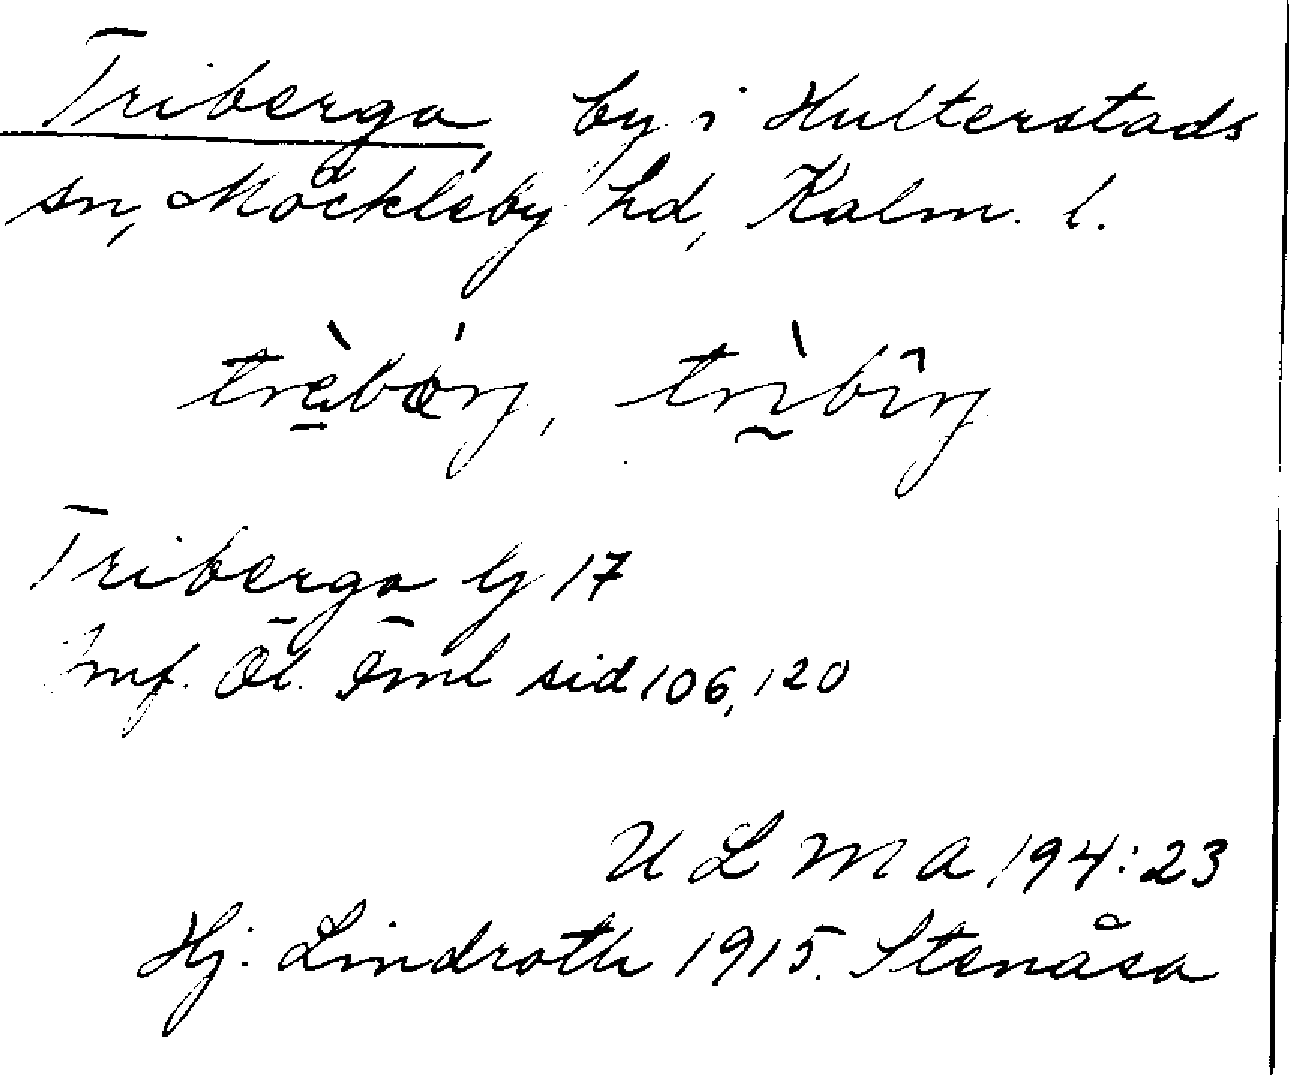 Triberga by i Hulterstads
sn, Möckleby hd, Kalm. l.
trèbøry, trìbîry
Triberga G 17
Jmf. Öl. Fml sid 106, 120
U L M A 194:23
Hj. Lindroth 1915. Stenåsa